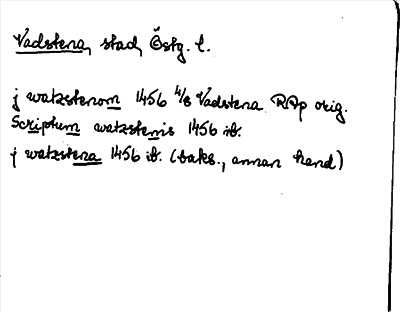 Vadstena, stad, Östg. l.
j watzstenom 1456 4/8 Vadstena RAp orig.
Scriptum watzstenis 1456 ib.
j watzstena 1456 ib. (baks., annan hand)